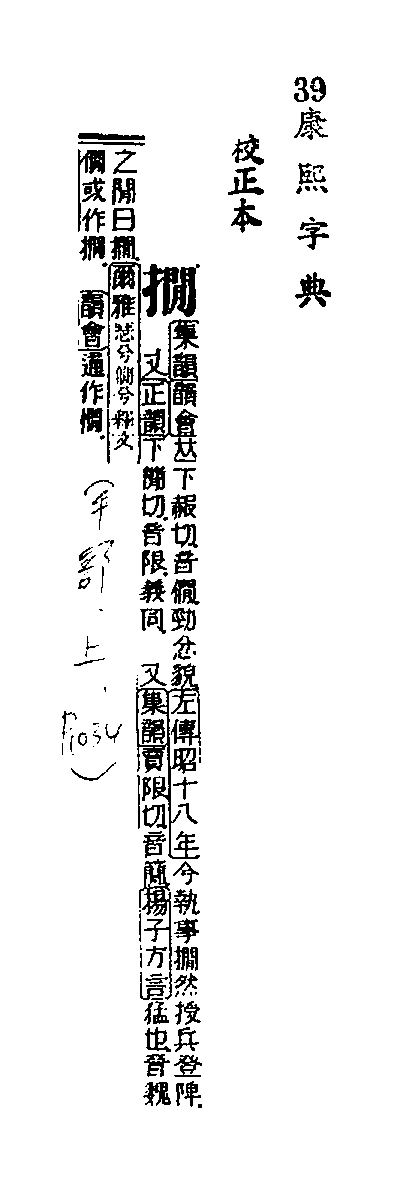 39康熙字典
校正本
撊
集韻韻會𠀤下赧切.音僩.勁忿貌.左傳昭十八年今執事撊然授兵登陴.
又正韻下簡切.音限.義同. 又集韻賈限切.音簡.揚子方言猛也.晉魏
之閒曰撊.爾雅瑟兮僩兮釋文
僩或作撊. 韻會通作僩.
(手部.上.P1034)